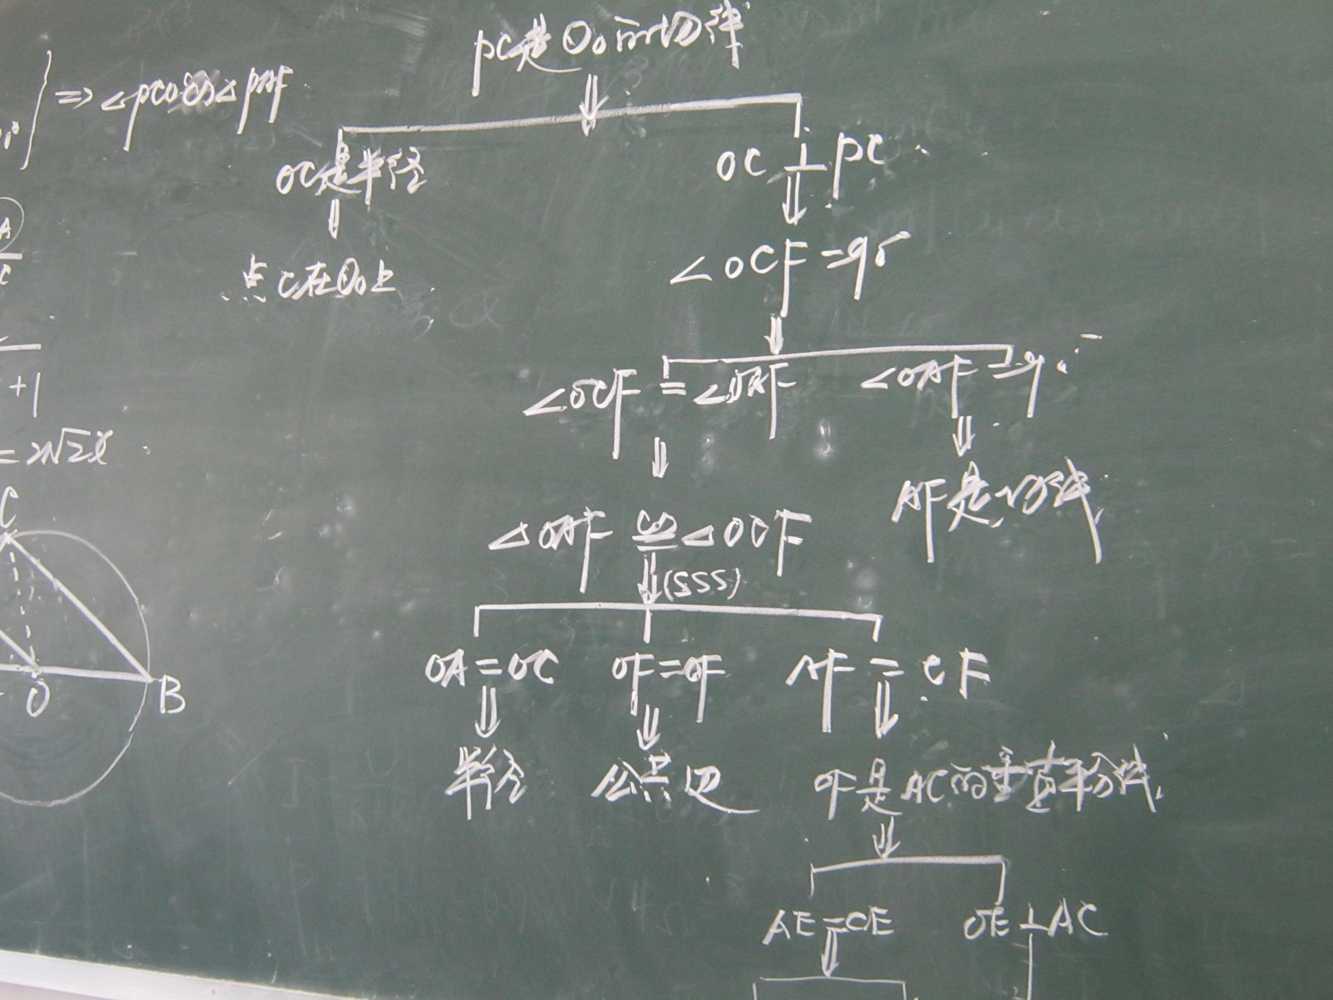 PC是⊙O的切线
⇒ △PCO∽△PAF
OC是半径
OC⊥PC
点C在⊙O上
∠OCF=90°
∠OCF=∠OAF
∠OAF=90°
+1
=2√2x
AF是切线
△OAF≌△OCF
(SSS)
C
OA=OC
OF=OF
AF=CF
O
B
半径
公共边
OF是AC的垂直平分线
AE=CE
OE⊥AC